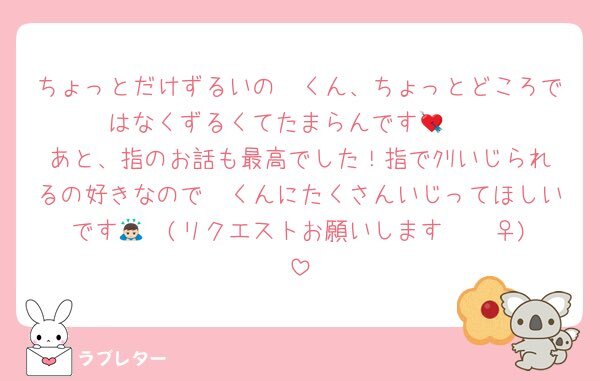 ちょっとだけずるいの　くん、ちょっとどころで
はなくずるくてたまらんです💘
あと、指のお話も最高でした！指でｸﾘいじられ
るの好きなので　くんにたくさんいじってほしい
です🙇 (リクエストお願いします　　♀)
♡
ラブレター